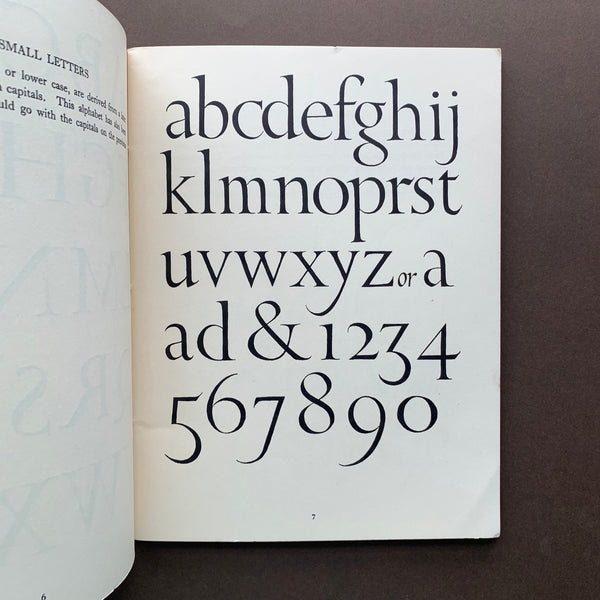 SMALL LETTERS
or lower case, are derived from a
capitals. This alphabet has also been
go with the capitals on the
6
abcdefghij
klmnoprst
uvwxyz or a
ad & 1234
567890
7